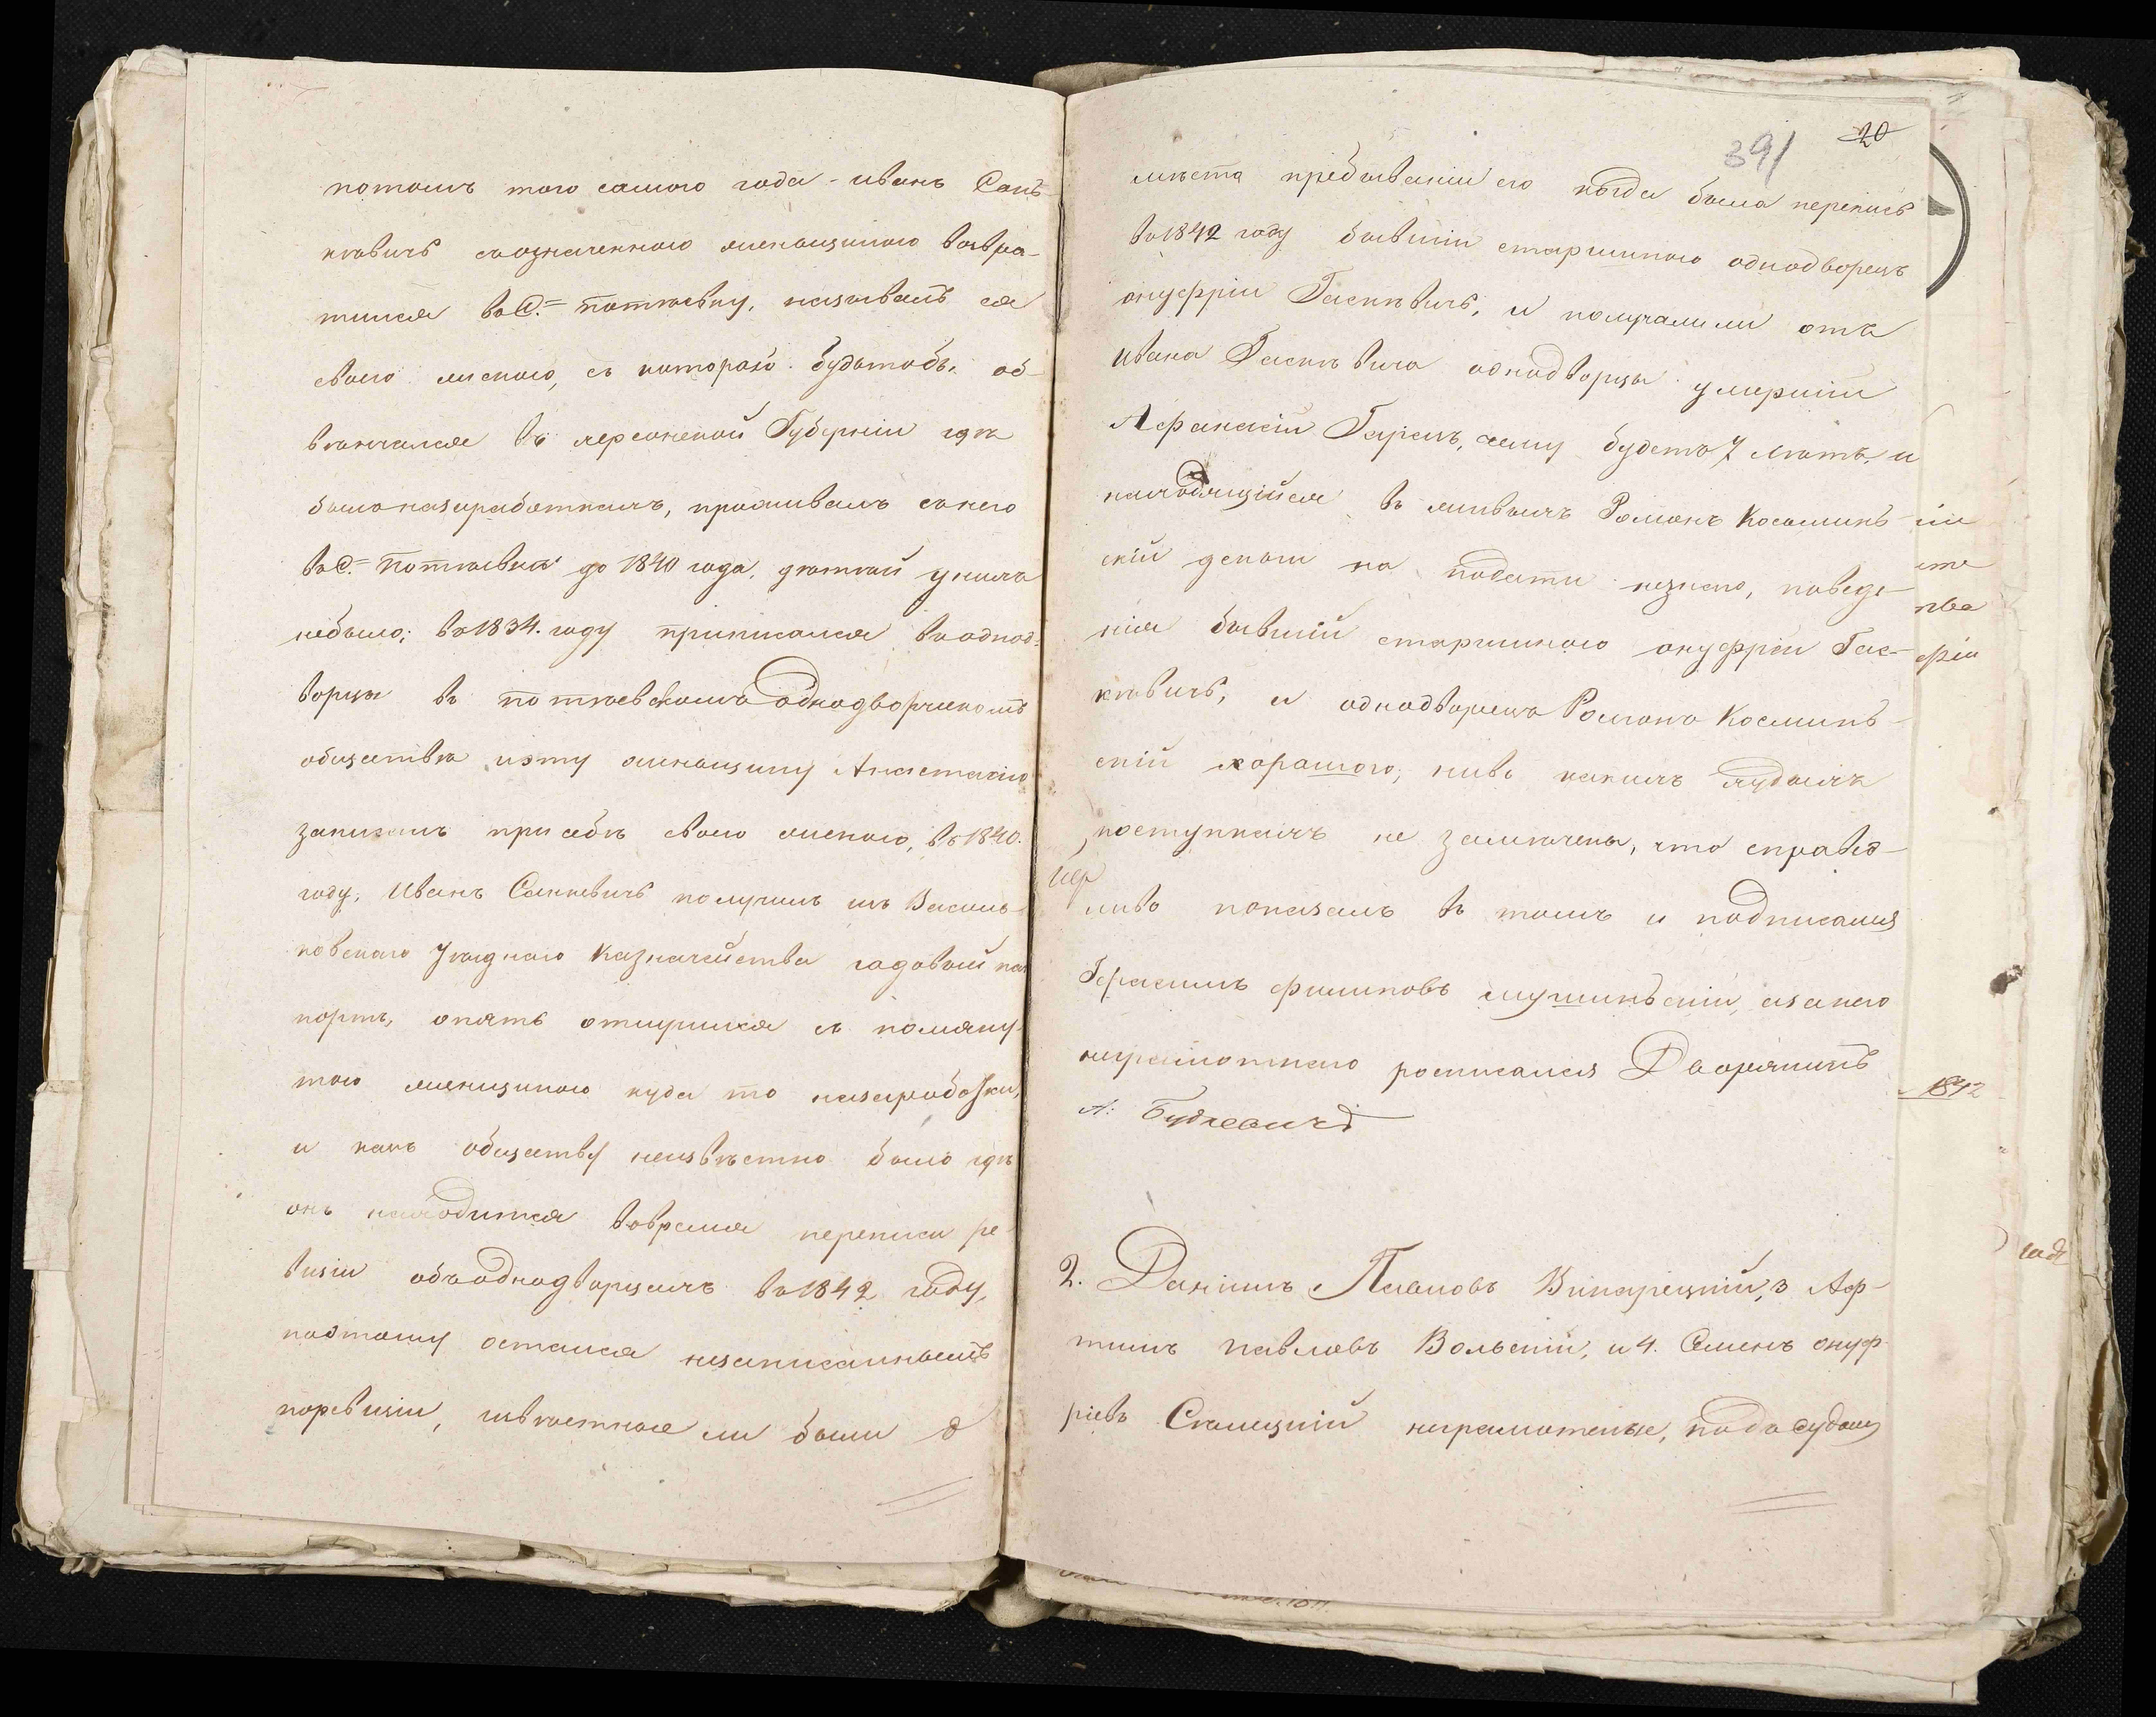 потомъ того самого года – иванъ Сань-
кѣвичъ соозначенною женщиною возвра-
тился въ С.= потіевку, называлъ ея
своею женою, съ которой будьтобы об-
вѣнчался въ херсонской Губерніи гдѣ
было назаработкахъ, проживалъ снею
въ С.= Потіевки до 1840 года, дѣтей унихъ
небыло; въ 1834. году приписался воднод-
ворцы въ потіевскомъ однодворческомъ
обществѣ иэту женьщину Анастасію
записалъ при себѣ своею женою, въ 1840.
году, Иванъ Санкевичъ получилъ изъ Василь-
ковскаго Уѣзднаго Казначейства годовый пас
портъ, опять отлучился съ помяну-
тою женщиною куда то назаработки,
и какъ обществу неизвѣстно было гдѣ
онъ находится вовремя переписи ре-
визіи объоднодворцахъ въ 1842 году,
поэтому остался незаписаннымъ
поревизіи, извѣстное ли были о
391 20
мѣста пребываніи его когда была перепись
въ 1842 году бывшій старшиною однодворецъ
онуфрій Гаскѣвичъ, и получалили отъ
Ивана Саскѣвича однодворцы умершій
Афанасій Гарихъ, чему будетъ 7 лѣтъ, и
находящійся въ живыхъ Романъ Косашинъ-
скій деньги на подати незнаю, поведе-
нія бывшій старшиною онуфрій Гас-
кѣвичъ, и однодворецъ Романъ Косминъ-
скій хорошого, нивъ какихъ худыхъ
поступкахъ не замѣчены, что справед-
ливо показалъ въ томъ и подписался
Герасимъ филиповъ мушинъскій, азанего
неграмотнаго росписался Дворянинъ
А: Будкевичъ
2. Даніилъ Павловъ Викарецкій, 3 Аф-
тимъ павловъ Вольскій, и 4. Семенъ онуф-
ріевъ Сталецкій неграмотные, подъ судомъ
1842